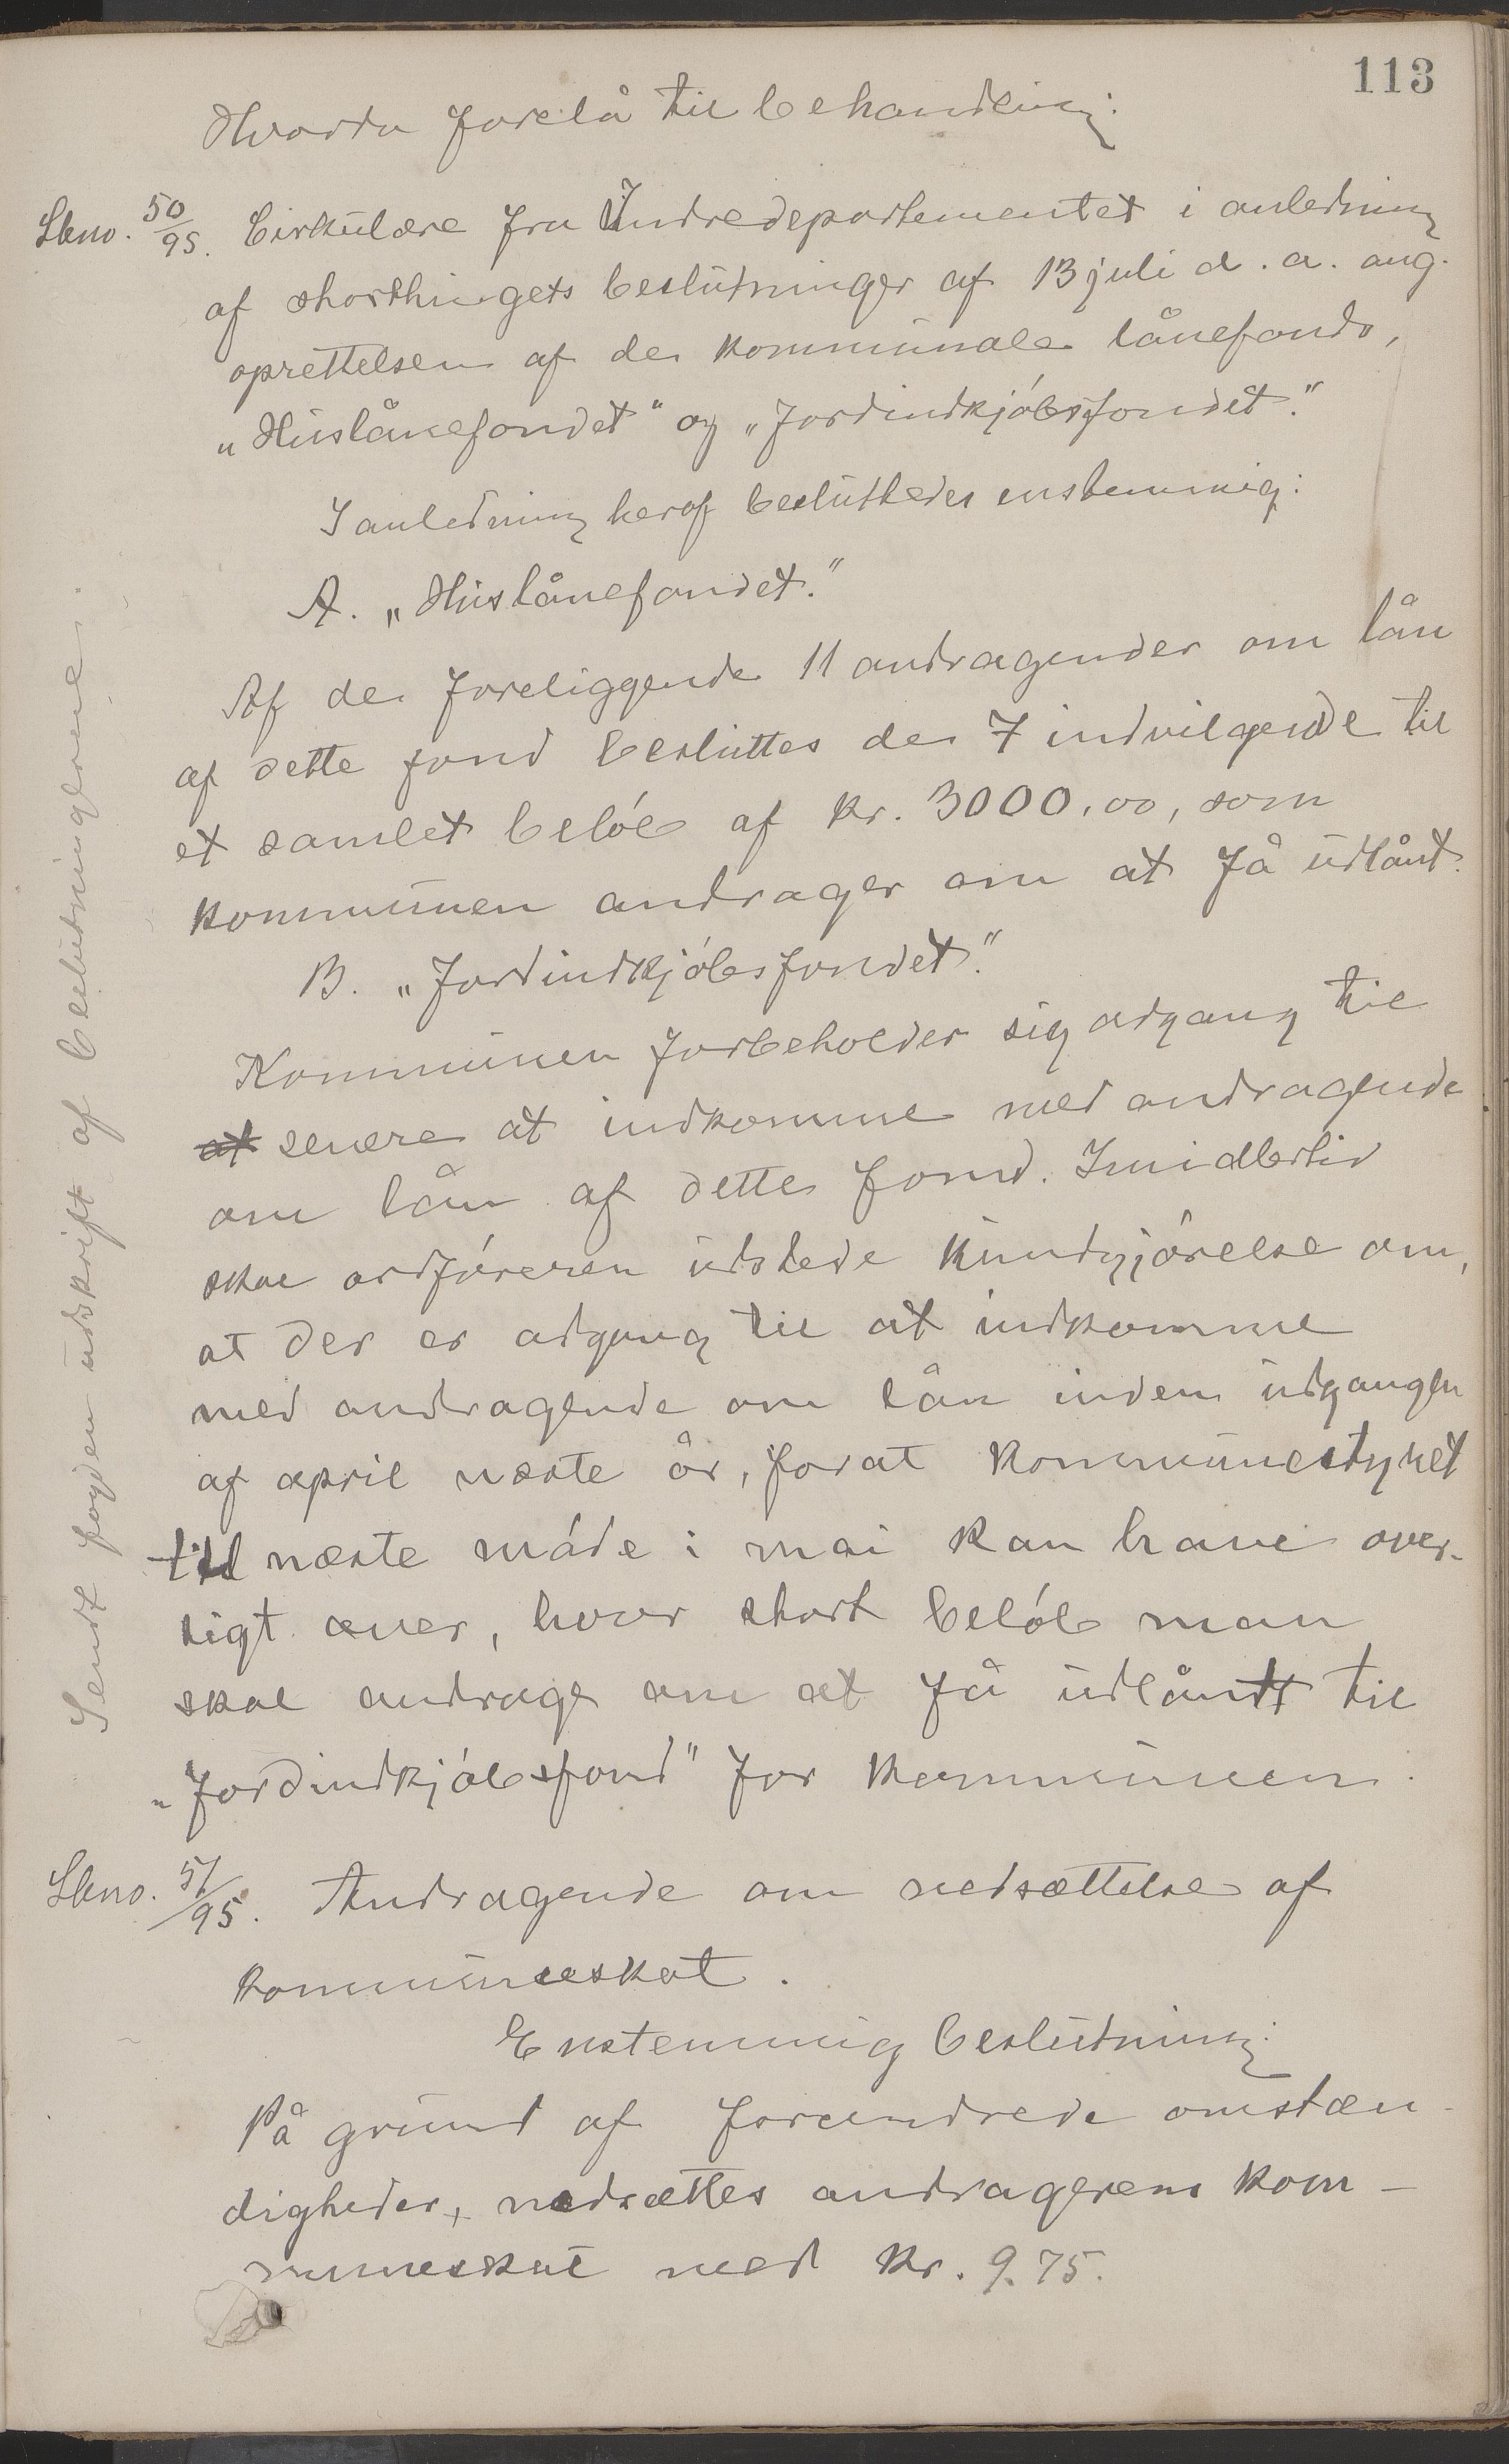 113
Hvorda forelå til behandling:
Sbno. 50/95. Cirkulære fra Indredepartementet i anledning
af storthingets beslutninger af 13 juli d. a. ang.
oprettelsen af de kommunale lånefonds,
„Huslånefondet" og „Jordindkjóbsfondet."
I anledning heraf besluttedes enstemmig:
A. „Huslånefondet."
Af de foreliggende 11 andragender om lån
af dette fond besluttes de 7 indvilgende til
et samlet belób af kr. 3000,00, som
kommunen andrager om at få udlånt.
B. „Jordindkjóbsfondet."
Kommunen forbeholder sig adgang til
at senere at indkomme med andragende
om lån af dette fond. Imidlertid
skal ordfóreren udstede kundgjórelse om,
at der er adgang til at indkomme
med andragende om lån inden udgangen
af april næste år, forat kommunestyret
til næste móde i mai kan have over-
sigt over, hvor stort belób man
skal andrage om at få udlånt til
„Jordindkjóbsfond" for kommunen.
Sbno. 51/95. Andragende om nedsættelse af
kommuneskat.
Enstemmig beslutning:
På grund af forandrede omstæn-
digheder, nedsættes andragerens kom-
muneskat med kr. 9.75.
Sendt fogden udskrift af beslutningerne.